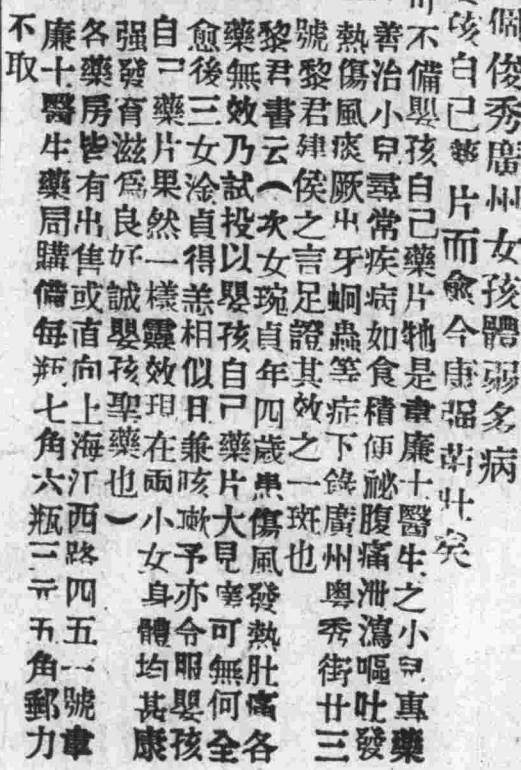 個俊秀廣州女孩體弱多病
孩自己藥片而愈今康强茁壯矣
不備嬰孩自己藥片牠是韋廉士醫生之小兒專藥
善治小兒尋常疾病如食積便祕腹痛泄瀉嘔吐發
熱傷風痰厥出牙蛔蟲等症下錄廣州粤秀街廿三
號黎君建侯之言足證其效之一斑也
黎君書云(次女琬貞年四歲患傷風發熱肚痛各
藥無效乃試投以嬰孩自己藥片大見可無何全
愈後三女淦貞得恙相似日兼咳嗽予亦令服嬰孩
自己藥片果然一樣靈效現在兩小女身體均甚康
强發育滋爲良好誠嬰孩聖藥也)
各藥房皆有出售或直向上海江西路四五一號韋
廉士醫生藥局購備每瓶七角六瓶三元五角郵力
不取